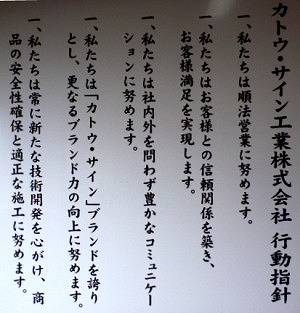 カトウ・サイン工業株式会社 行動指針
一、私たちは順法営業に努めます。
一、私たちはお客様との信頼関係を築き、
お客様満足を実現します。
一、私たちは社内外を問わず豊かなコミュニケー
ションに努めます。
一、私たちは「カトウ・サイン」ブランドを誇り
とし、更なるブランド力の向上に努めます。
一、私たちは常に新たな技術開発を心がけ、商
品の安全性確保と適正な施工に努めます。